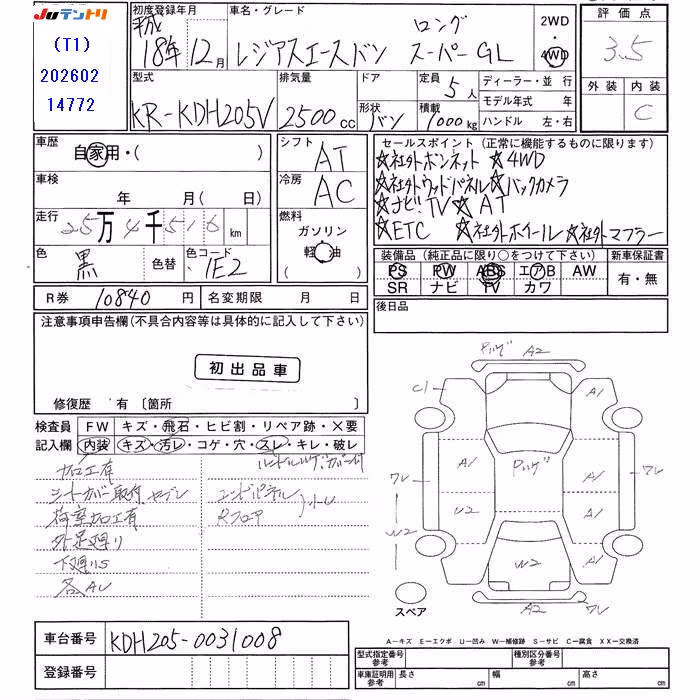 JUテントリ
(T1)
202602
14772
初度登録年月
平成
18年 12月
車名・グレード
ロング
レジアスエースバン スーパーGL
2WD
4WD
評価点
3.5
外装 内装
C
型式
KR-KDH205V
排気量
2500cc
ドア
形状
バン
定員 5人
積載 1000kg
ディーラー・並行
モデル年式 年
ハンドル 左・右
車歴
自家用・( )
車検
年 月( 日)
走行
25万4千516km
色
黒
色替
色コード
1E2
シフト
AT
冷房
AC
燃料
ガソリン
軽油
セールスポイント (正常に機能するものに限ります)
☆社外ボンネット ☆4WD
☆社外ウッドパネル ☆バックカメラ
☆ナビTV ☆AT
☆ETC ☆社外ホイール ☆社外マフラー
装備品 (純正品に限り○をつけて下さい)
PS PW ABS エアB AW
SR ナビ TV カワ
新車保証書
有・無
R券 10840円
名変期限 月 日
後日品
注意事項申告欄(不具合内容等は具体的に記入して下さい)
初出品車
修復歴 有 〔箇所
検査員
記入欄
FW キズ・飛石・ヒビ割・リペア跡・×要
内装 キズ・汚レ・コゲ・穴・スレ・キレ・破レ
加工有
シートカバー取付
荷室加工有
外足廻り
下廻りS
各AU
Rフロア
A2
C1
A1
A1
A1
U2
A1
A1
W2
W2
A2
スペア
A―キズ E―エクボ U―凹み W―補修跡 S―サビ C―腐食 XX―交換済
車台番号
KDH205-0031008
登録番号
型式指定番号
参考
種別区分番号
参考
車庫証明用
参考
長さ cm
幅 cm
高さ cm